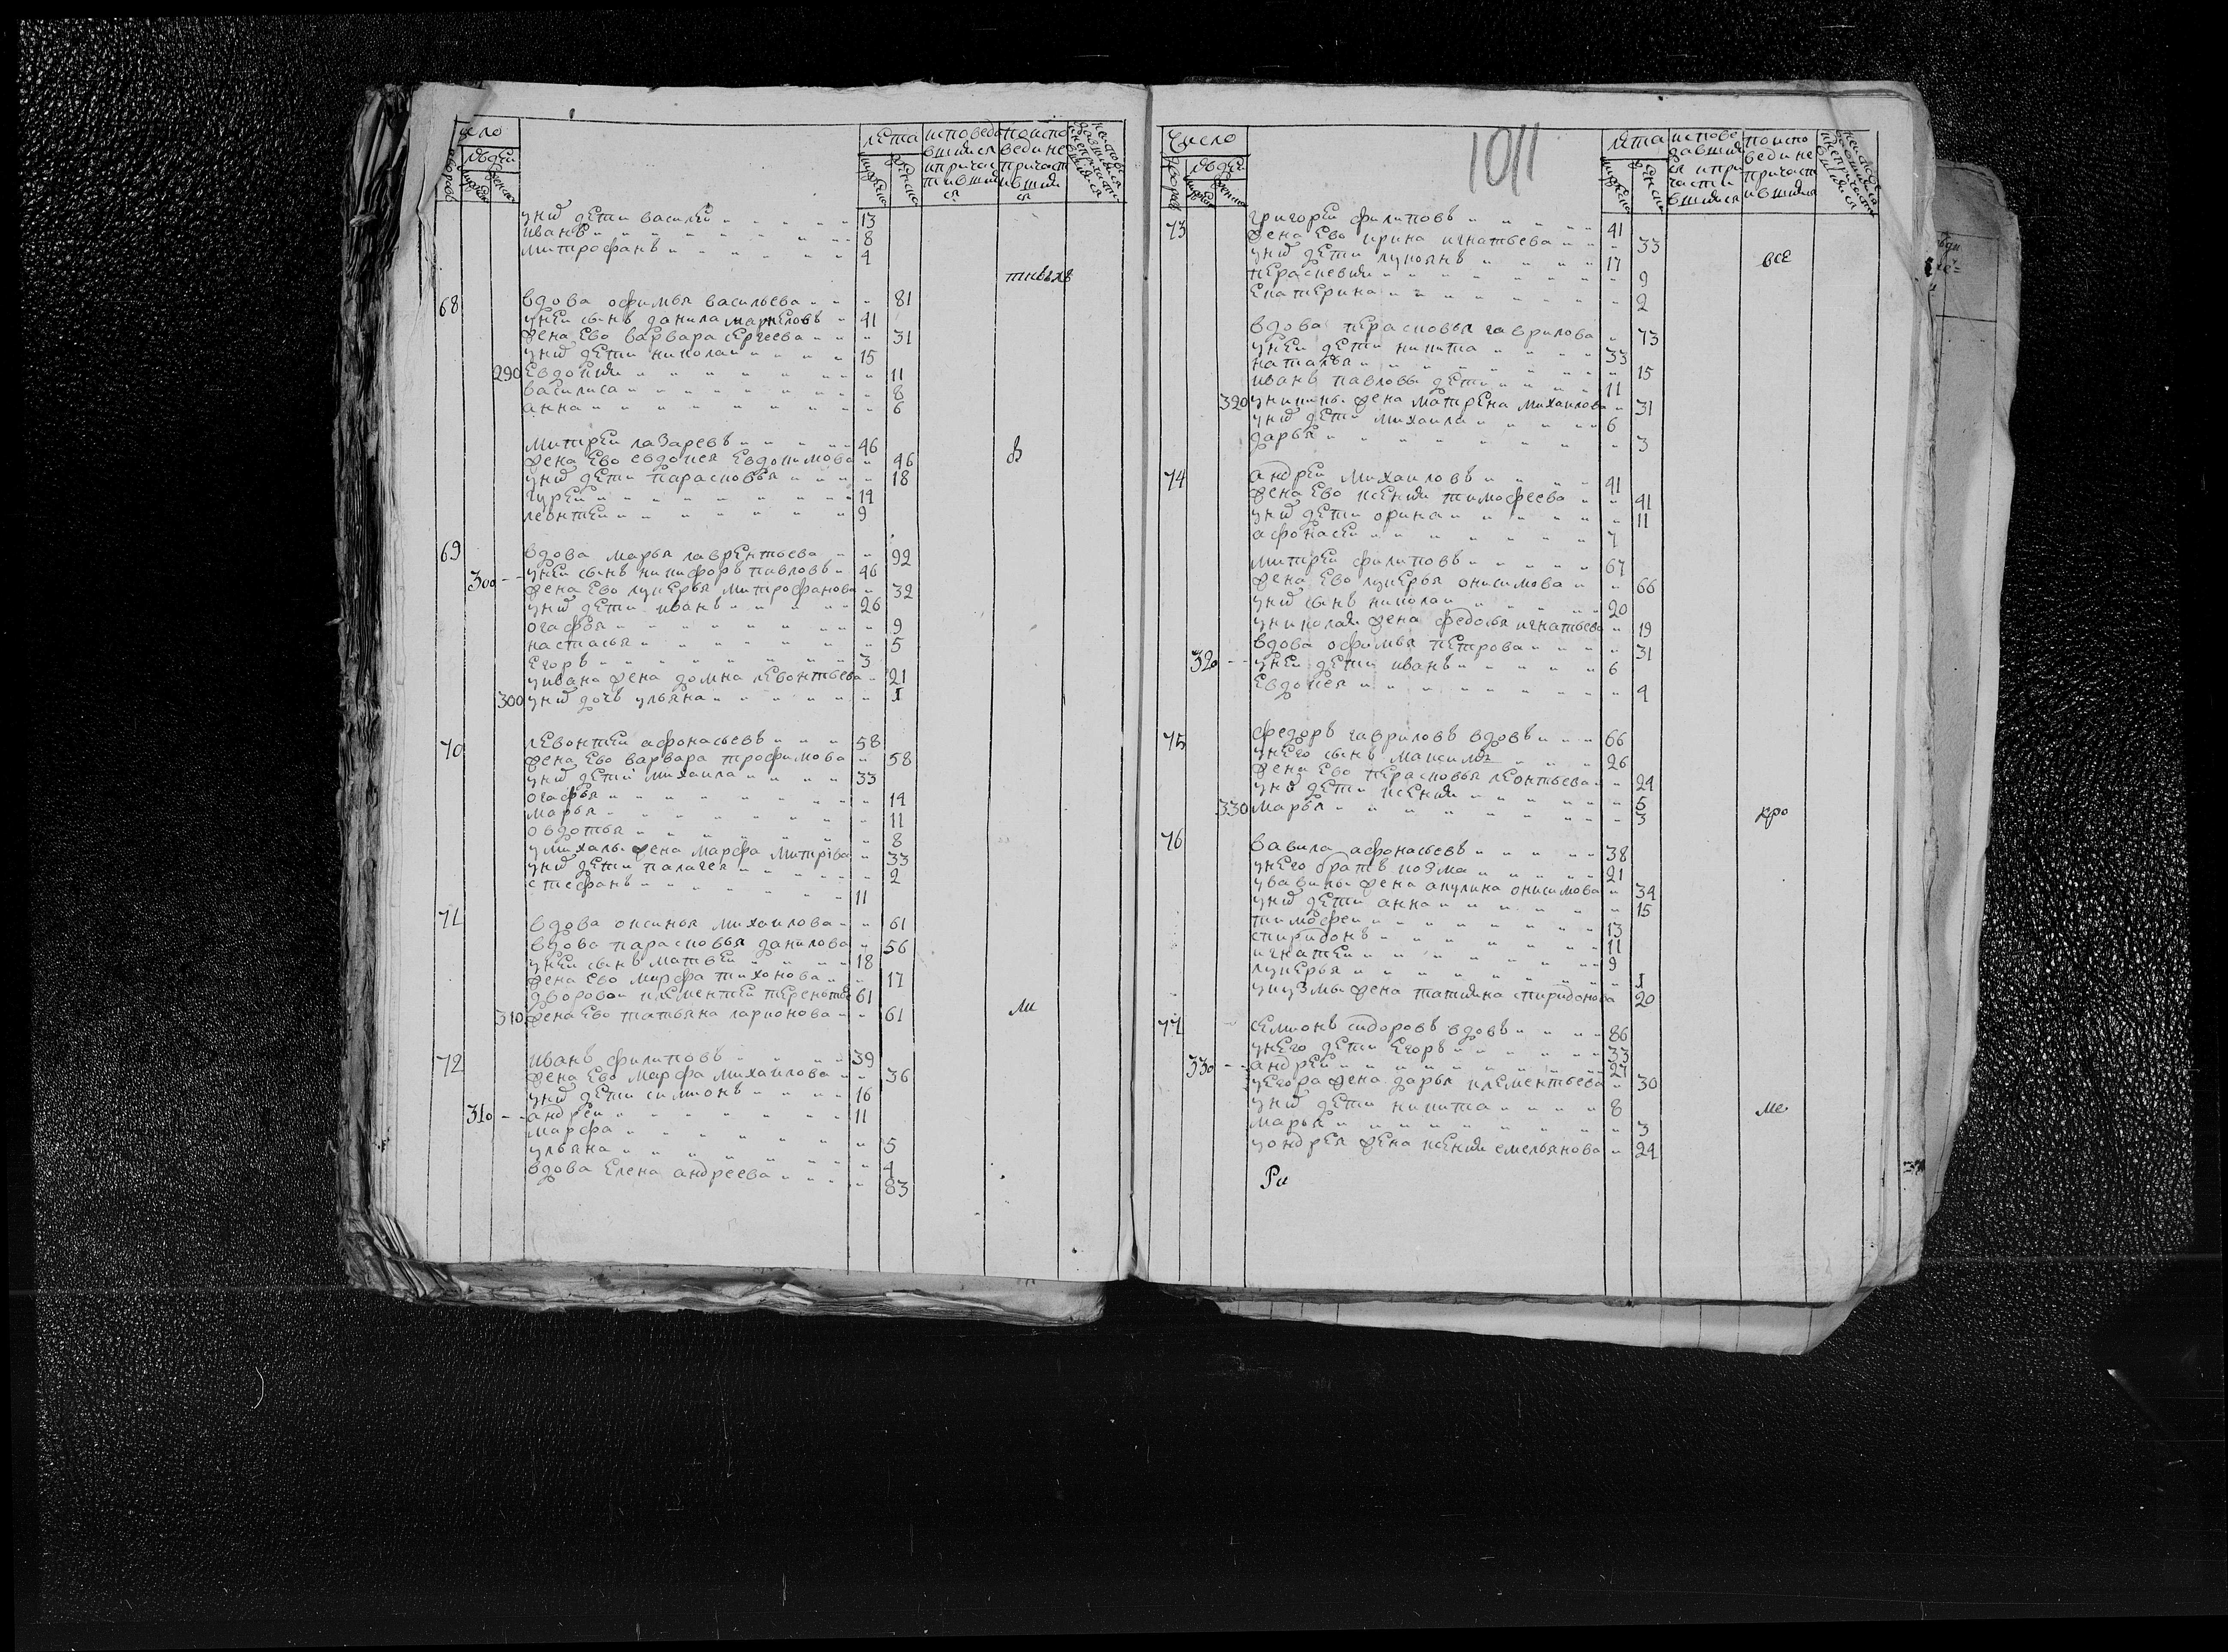 число
людеи
дворовъ
мужеска
женска
лѣта
мужеска
женска
исповеда
вшихся
и причас
тившия
ся
по испо
веди не
причаст
ившия
ся
у нихъ дети василеи 13
иванъ 8
митрофанъ 4
68 вдова офимья васильева 81
у неи сынъ данила маркеловъ 41
жена ево варвара сергеева 31
у нихъ дети николаи 15
290 Евдокия 11
василиса 8
анна 6
митреи лазаревъ 46
жена ево евдокея Евдокимова 46
у нихъ дети парасковья 18
гуреи 14
леонтеи 9
69 вдова марья лаврентьева 92
300 у неи сынъ никифоръ павловъ 46
жена Ево лукерья митрофанова 32
у нихъ дети иванъ 26
огафья 9
настасья 5
Егоръ 3
у ивана жена домна левонтьева 21
300 у нихъ дочь ульяна 1
70 левонтеи афонасьевъ 58
жена Ево варвара трофимова 58
у нихъ дети михаила 33
огафья 14
марья 11
овдотья 8
у михалы жена марфа митрева 33
у нихъ дети палагея 2
стефанъ 11
71 вдова оксинья михаилова 61
вдова парасковья данилова 56
у неи сынъ матвеи 18
жена Ево марфа тихонова 17
дворовои клементеи терентие 61
310 жена Ево татьяна ларионова 61
ли
72 иванъ филиповъ 39
жена Ево марфа михаилова 36
у нихъ дети симионъ 16
310 андреи 11
марфа 5
ульяна 4
вдова Елена андреева 83
1011
Число
людеи
мужеска
женска
лѣта
мужеска
женска
испове
давшия
ся и при
части
вшияся
по испо
веди не
причаст
ившияя
73 григореи филиповъ 41
жена Ево ирина игнатьева 33
у нихъ дети лукоянъ 17
все
перасковия 9
Екатерина 2
вдова перасковья гаврилова 73
у неи дети никита 33
наталья 15
иванъ павловы дети 11
320 у никиты жена матрена михаилова 31
у нихъ дети михаила 6
дарья 3
74 андреи михаиловъ 41
жена Ево ксения тимофеева 41
у нихъ дети орина 11
афонасеи 7
митреи филиповъ 67
жена Ево лукерья онисимова 66
у нихъ сынъ николаи 20
у николая жена федосья игнатьева 19
вдова офимья петрова 31
320 у неи дети иванъ 6
Евдокея 4
75 федоръ гавриловъ вдовъ 66
у него сынъ максимъ 26
жена Ево перасковья леонтьева 24
у нихъ дети ксения 5
330 марья 3
кро
76 вавила афонасьевъ 38
у него братъ козма 21
у вавилы жена акулина онисимова 34
у нихъ дети анна 15
тимофеи 13
спиридонъ 11
игнатеи 9
лукерья 1
у кузмы жена татияна спиридонова 20
77 семионъ сидоровъ вдовъ 86
у него дети Егоръ 33
330 андреи 27
у егора жена дарья клементьева 30
у нихъ дети никита 8
ме
марья 3
у ондрея жена ксения емельянова 24